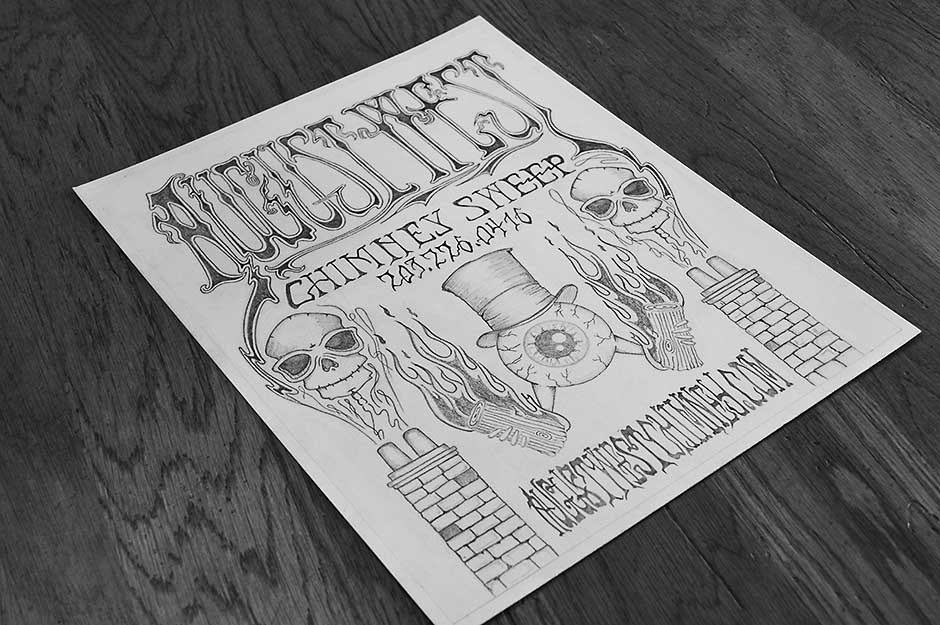 AUGUST WEST
CHIMNEY SWEEP
203.226.0416
AUGUSTWESTCHIMNEY.COM